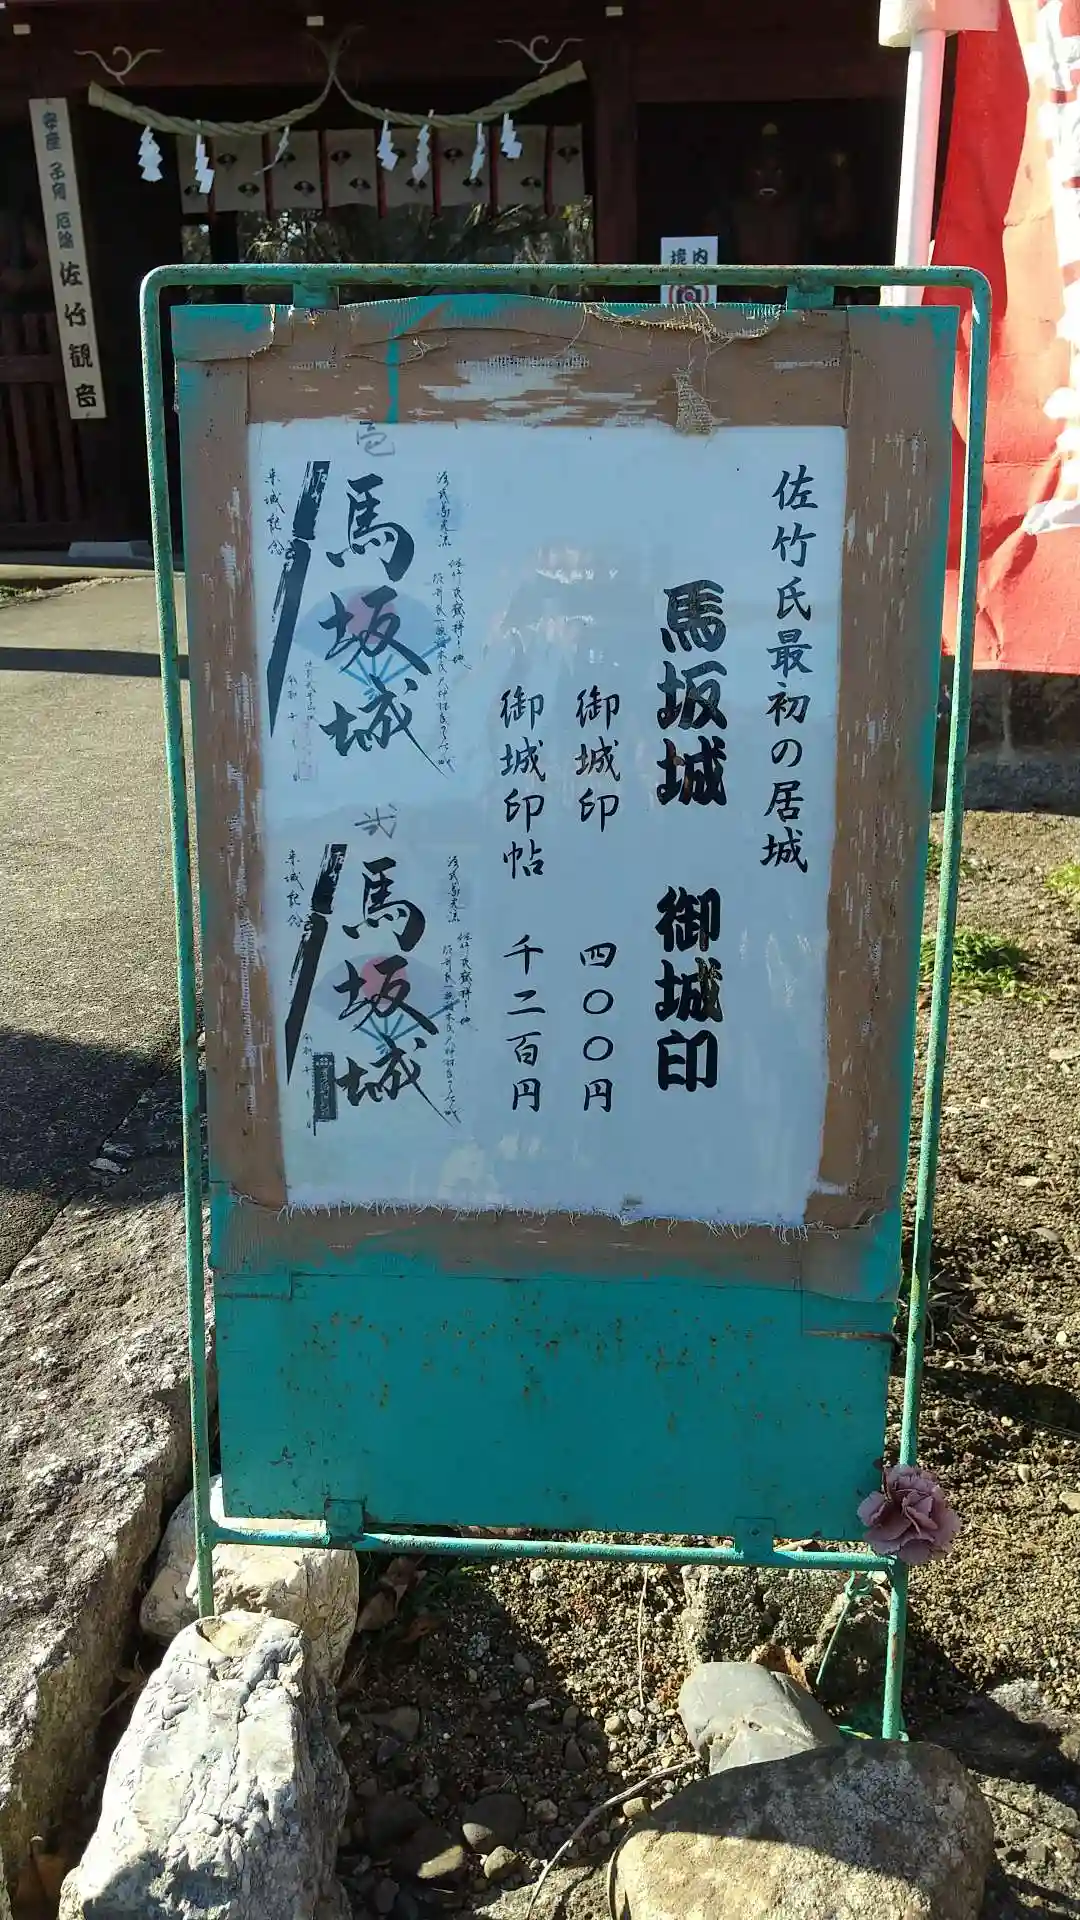 安産 子育 厄除 佐竹観音
境内
佐竹氏最初の居城
馬坂城 御城印
御城印 四〇〇円
御城印帖 千二百円
壱
馬坂城
来城記念
弐
馬坂城
来城記念